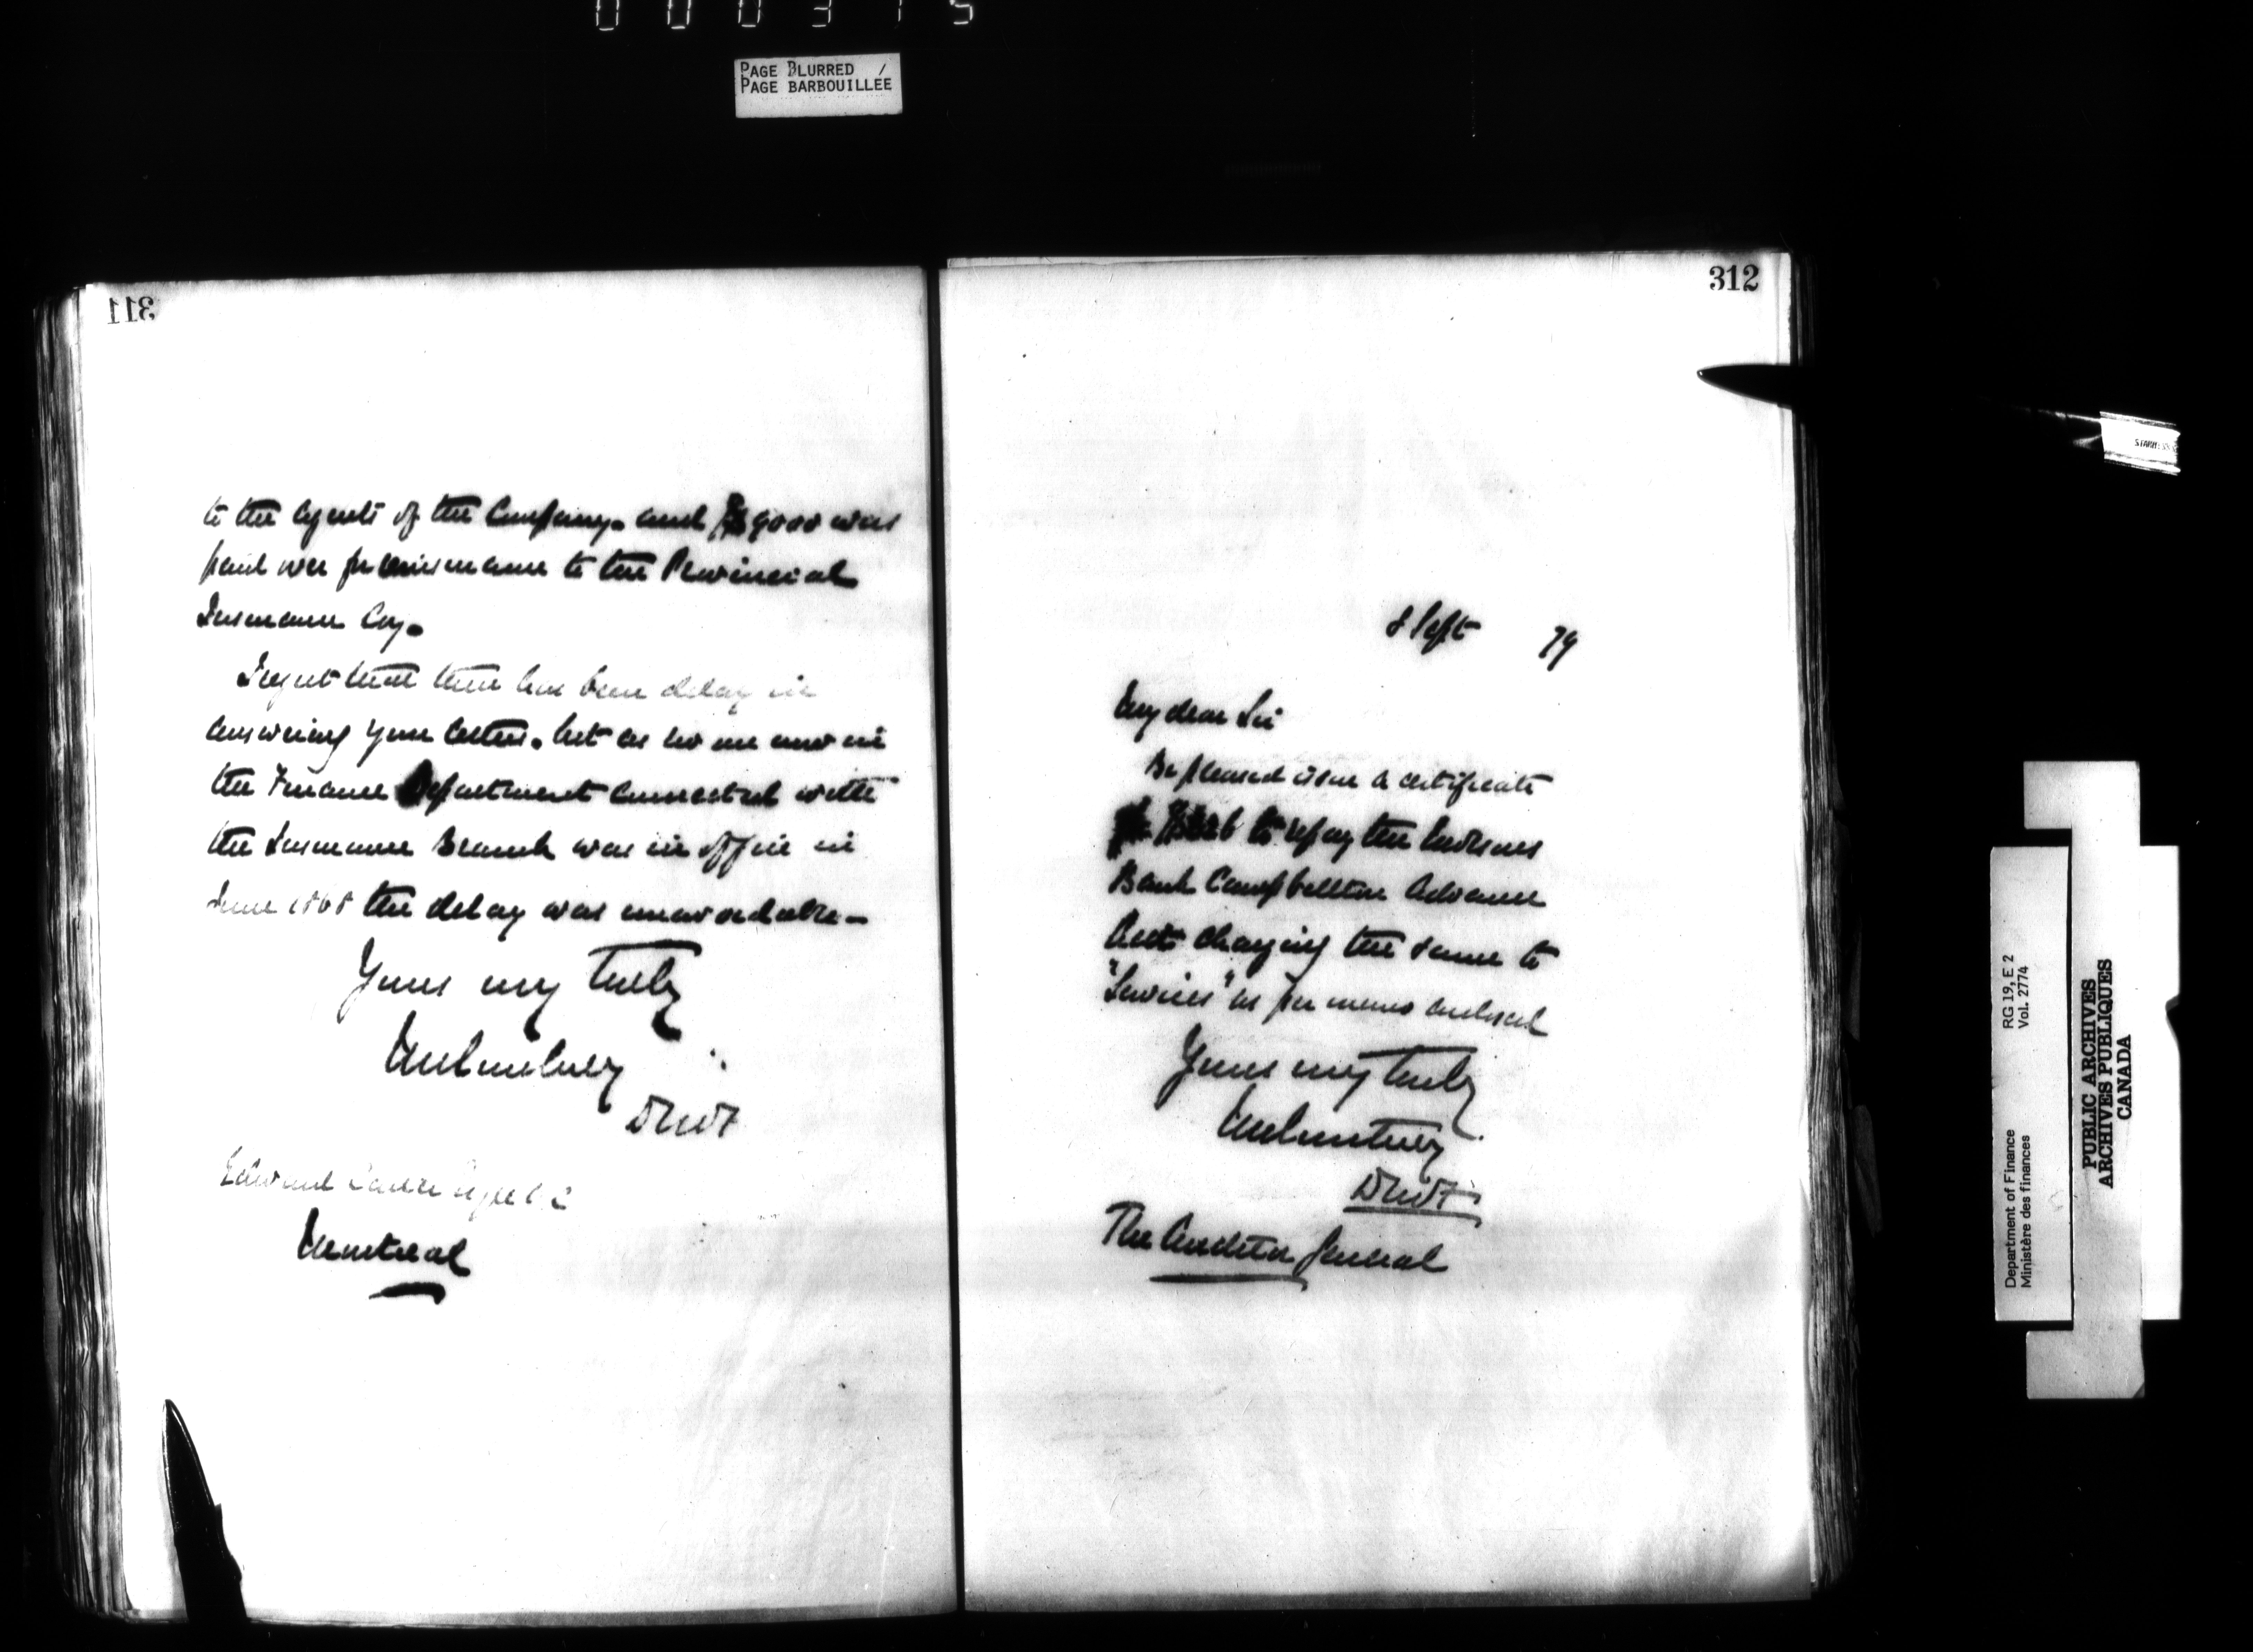 000315
PAGE BLURRED /
PAGE BARBOUILLEE
311
to the Agents of the Company. and $9000 was
paid over for reinsurance to the Provincial
Insurance Coy.
I regret that there has been delay in
answering your letter. but as no one now in
the Finance Department connected with
the Insurance Branch was in office in
June 1868 the delay was unavoidable—
Yours very truly
JMCourtney
DMofF
Edward
Montreal
312
8 Sept 79
My dear Sir
Be pleased issue a certificate
to repay the
Bank Campbellton Advance
Acct charging the same to
"Services" as per memo enclosed
Yours very truly
JMCourtney
DMofF
The Auditor General
Department of Finance RG 19, E 2
Ministère des finances Vol. 2774
PUBLIC ARCHIVES
ARCHIVES PUBLIQUES
CANADA